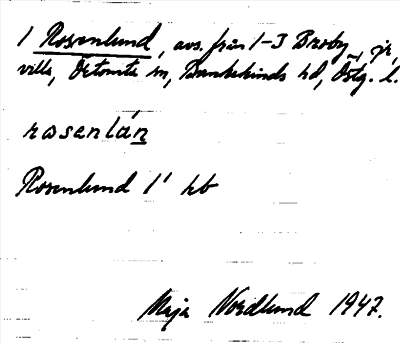 1 Rosenlund, avs. från 1-3 Broby, jr,
villa, Örtomta sn, Bankekinds hd, Östg. l.
rosenlán
Rosenlund 1' hb
Maja Nordlund 1947.